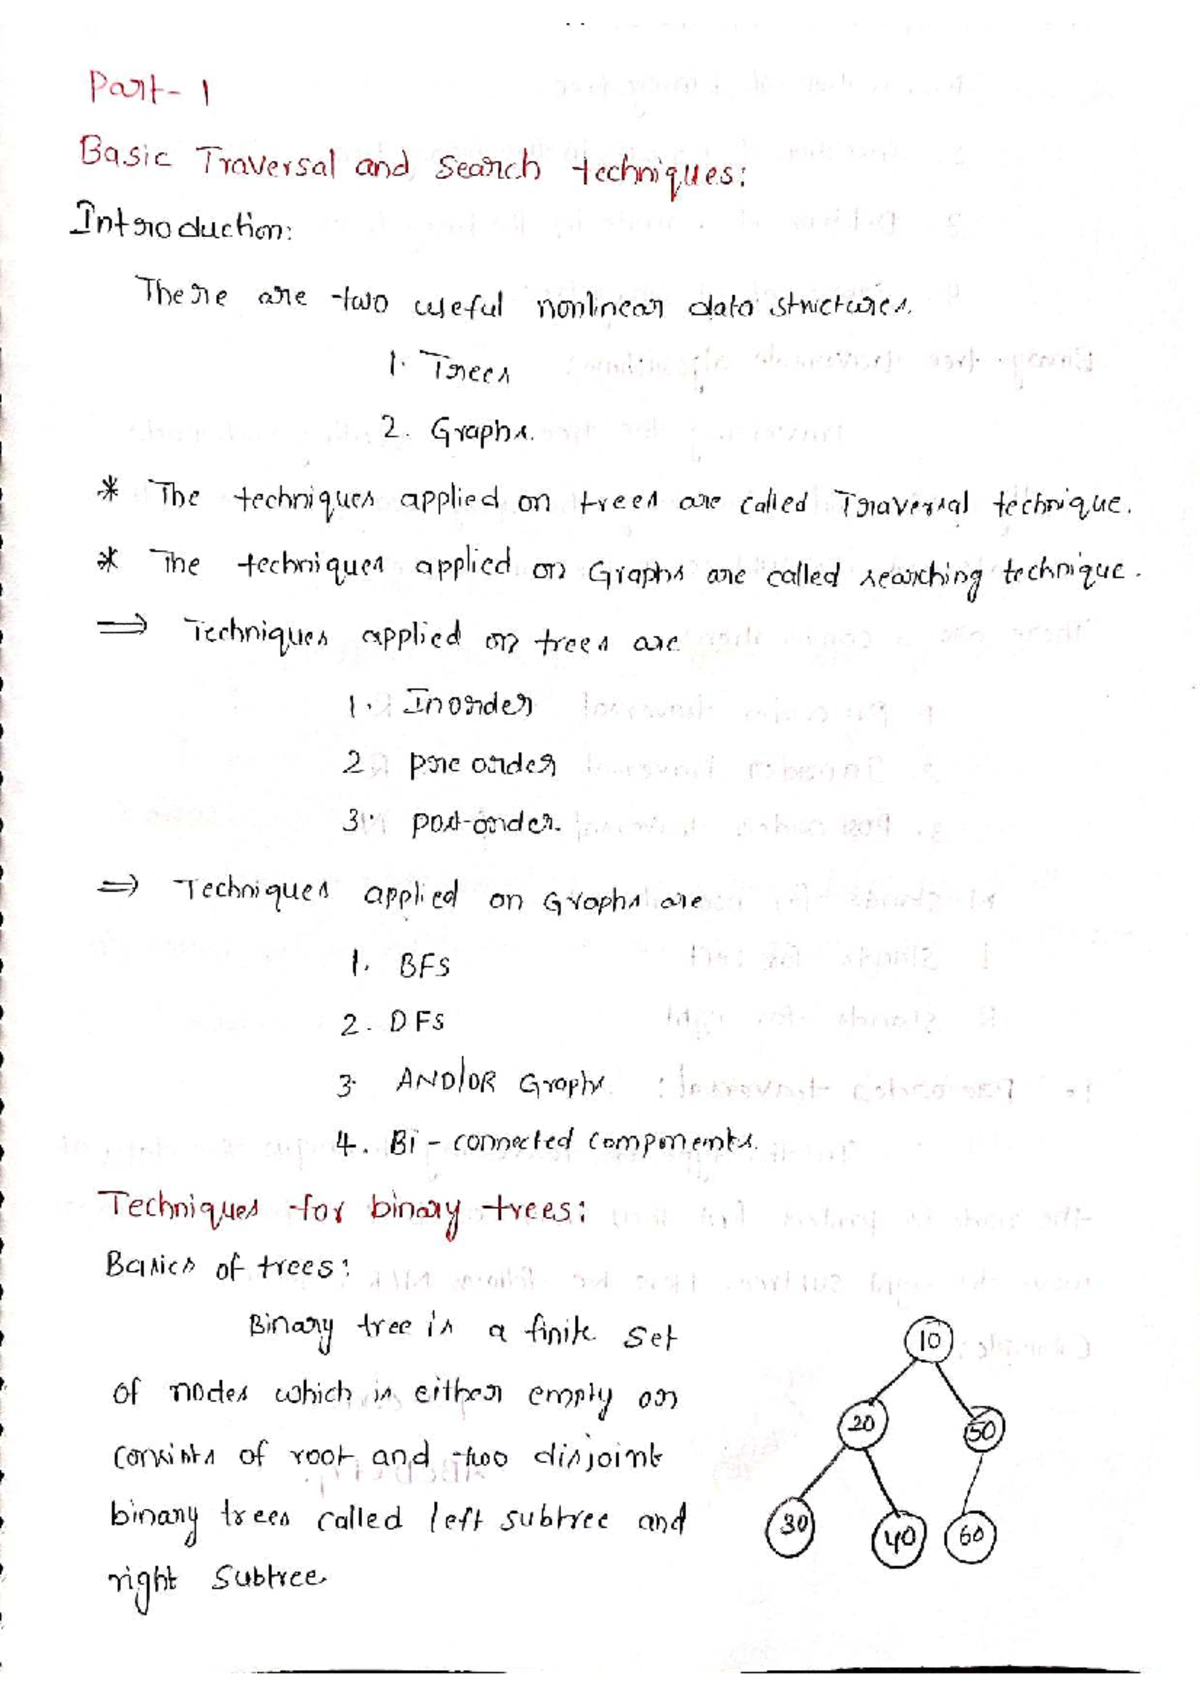 Part- 1
Basic Traversal and Search techniques:
Introduction:
There are two useful nonlinear data structures.
1. Trees
2. Graphs.
* The techniques applied on trees are called Traversal technique.
* The techniques applied on Graphs are called searching technique.
⇒ Techniques applied on trees are
1. Inorder
2 pre order
3. post-order.
⇒ Techniques applied on Graphs are
1. BFS
2. DFS
3. AND/OR Graphs
4. Bi - connected components.
Techniques for binary trees:
Basics of trees:
Binary tree is a finite set
of nodes which is either empty or
consists of root and two disjoint
binary trees called left subtree and
right subtree
10
20
50
30
40
60